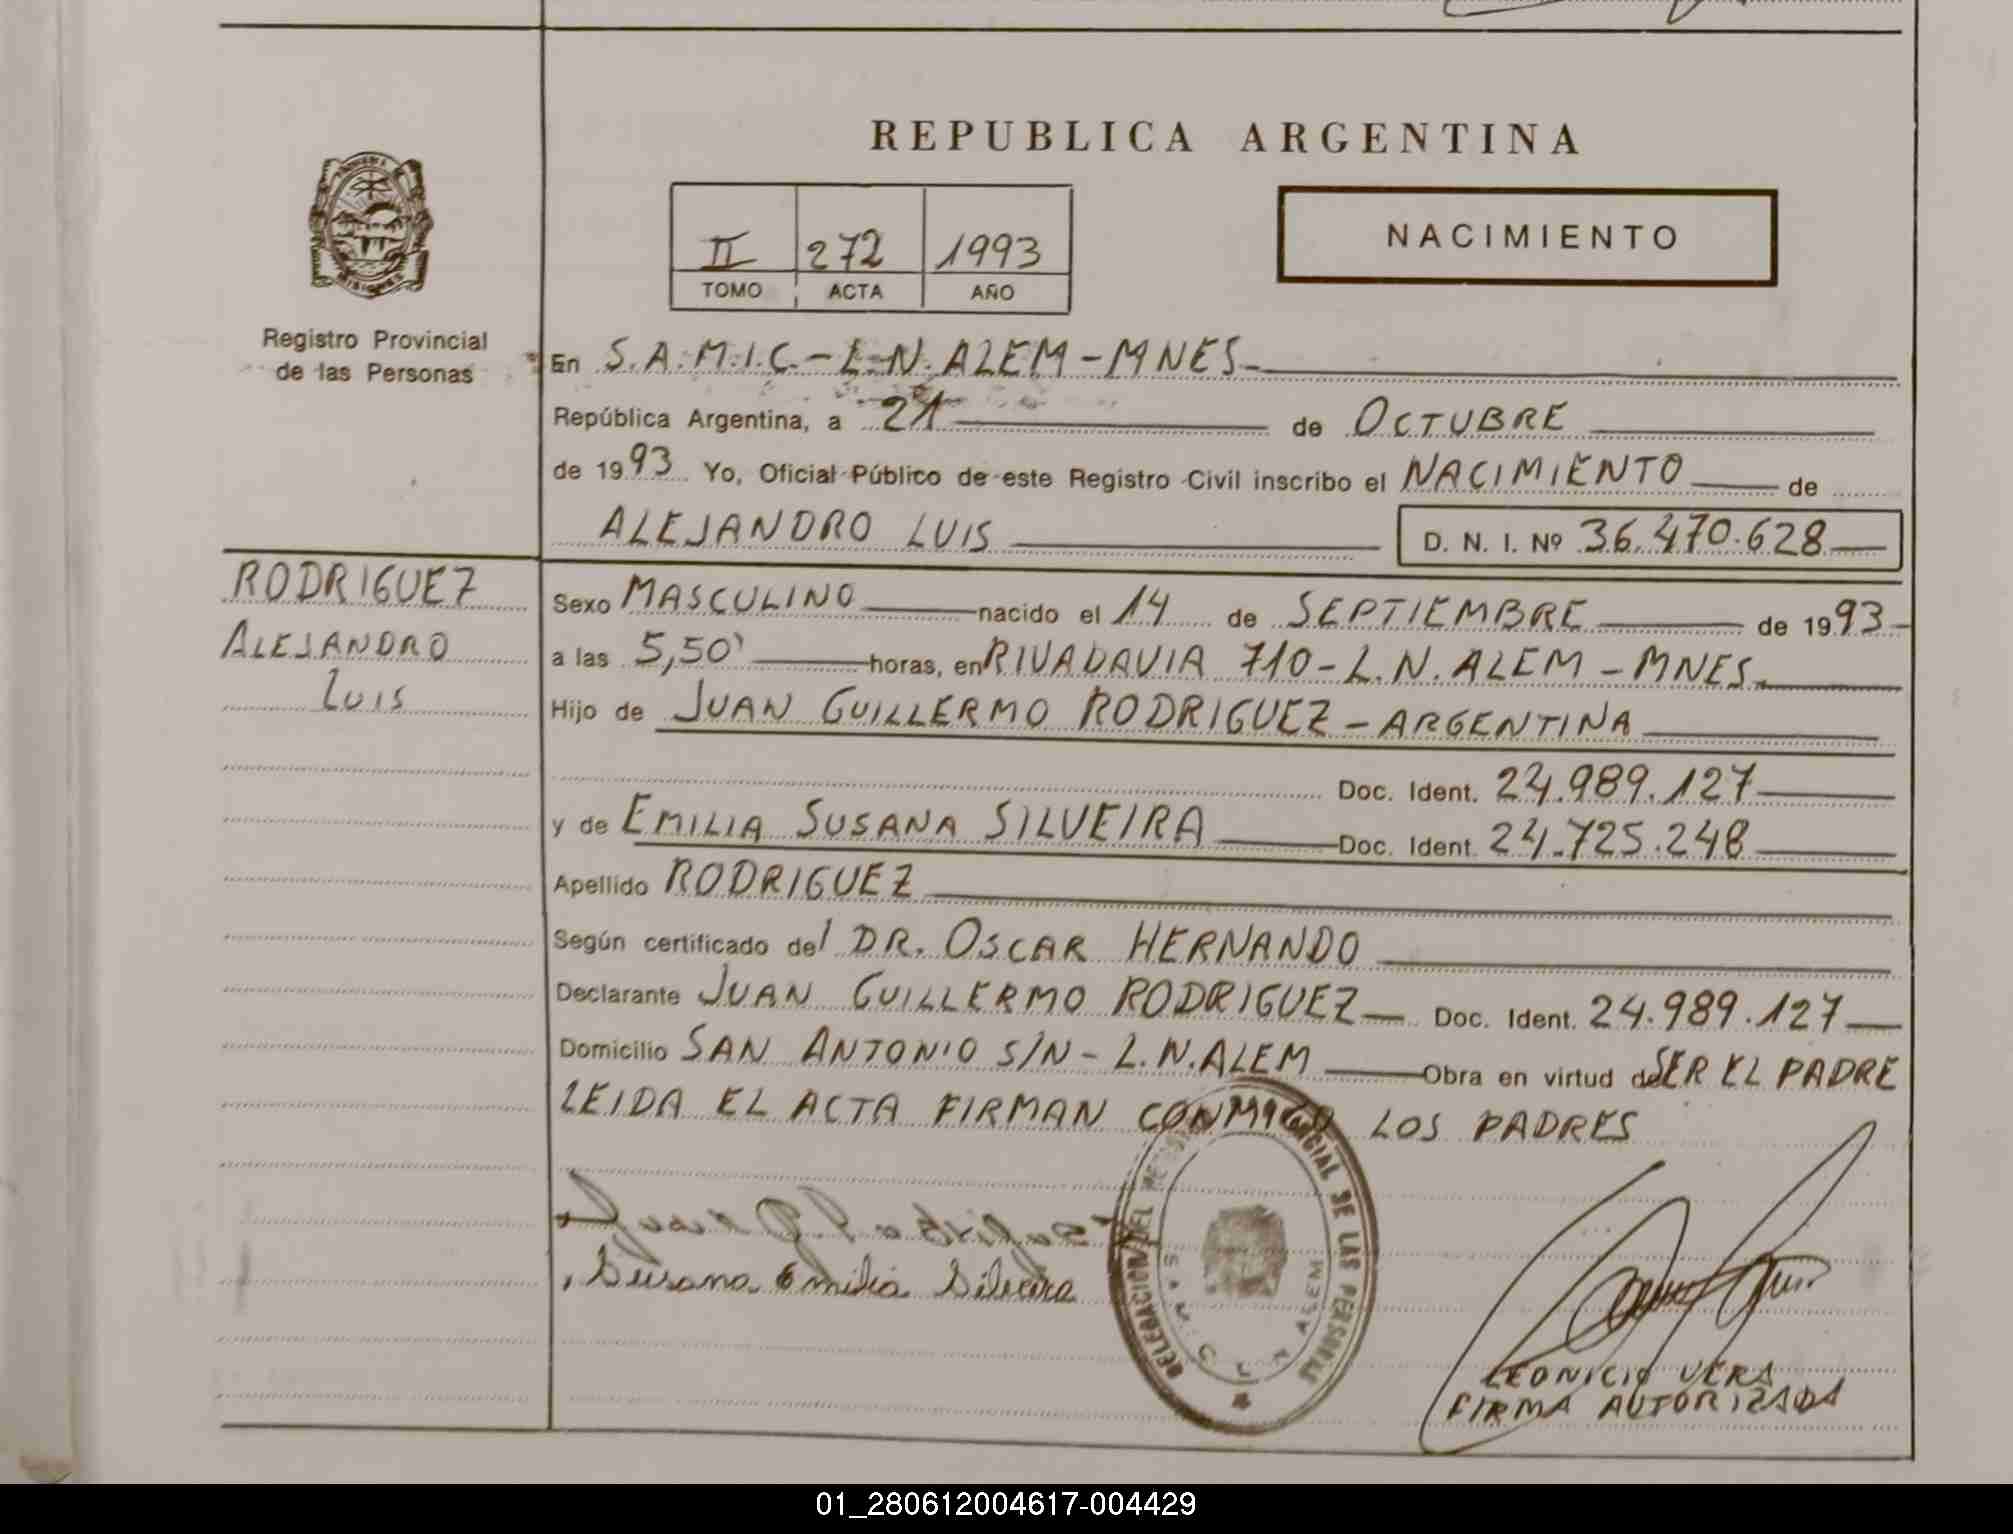 REPUBLICA ARGENTINA
II 272 1993
TOMO ACTA AÑO
NACIMIENTO
Registro Provincial
de las Personas
En S.A.M.I.C. - L.N. ALEM - MNES
República Argentina, a 21 de OCTUBRE
de 1993 Yo, Oficial Público de este Registro Civil inscribo el NACIMIENTO de
ALEJANDRO LUIS D. N. I. Nº 36.470.628
RODRIGUEZ
ALEJANDRO
LUIS
Sexo MASCULINO nacido el 14 de SEPTIEMBRE de 1993
a las 5,50' horas, en RIVADAVIA 710 - L.N. ALEM - MNES
Hijo de JUAN GUILLERMO RODRIGUEZ - ARGENTINA
Doc. Ident. 24.989.127
y de EMILIA SUSANA SILVEIRA Doc. Ident. 24.725.248
Apellido RODRIGUEZ
Según certificado del DR. OSCAR HERNANDO
Declarante JUAN GUILLERMO RODRIGUEZ Doc. Ident. 24.989.127
Domicilio SAN ANTONIO S/N - L.N. ALEM Obra en virtud de SER EL PADRE
LEIDA EL ACTA FIRMAN CONMIGO LOS PADRES
Susana Emilia Silveira
DELEGACION DEL CIAL DE LAS PERSONAS
ALEM
LEONICIO VERA
FIRMA AUTORIZADA
01_280612004617-004429